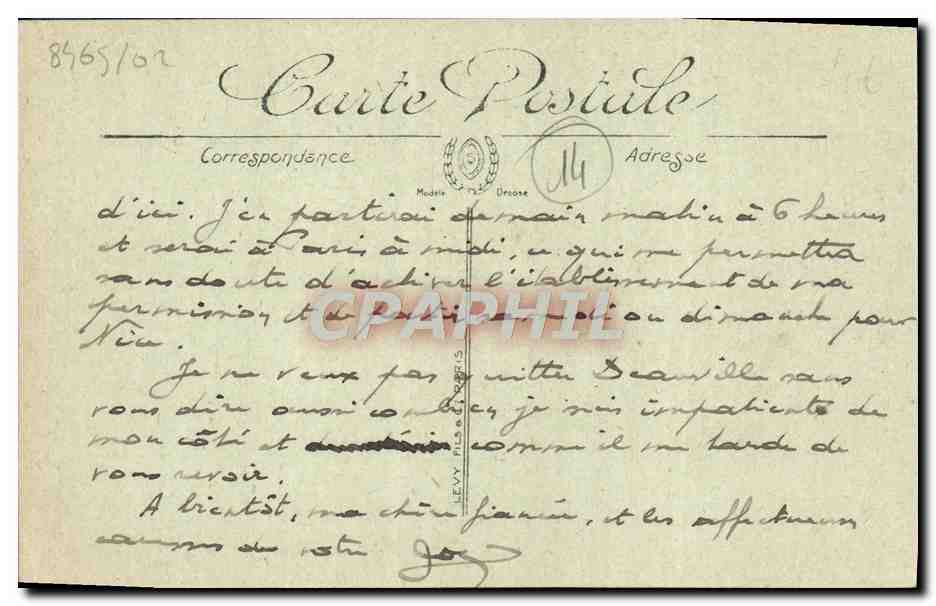 8465/02
Carte Postale
Correspondance
Adresse
14
Modèle
Déposé
d'ici. J'en partirai demain matin à 6 heures
et serai à Paris à midi, ce qui me permettra
sans doute d'achever l'établissement de ma
permission et de partir samedi ou dimanche pour
Nice.
Je ne veux pas quitter Deauville sans
vous dire aussi combien je suis impatient de
mon côté et comme il me tarde de
vous revoir.
A bientôt, ma chère fiancée, et les affectueuses
caresses de votre
LEVY FILS & Cie PARIS
CPAPHIL